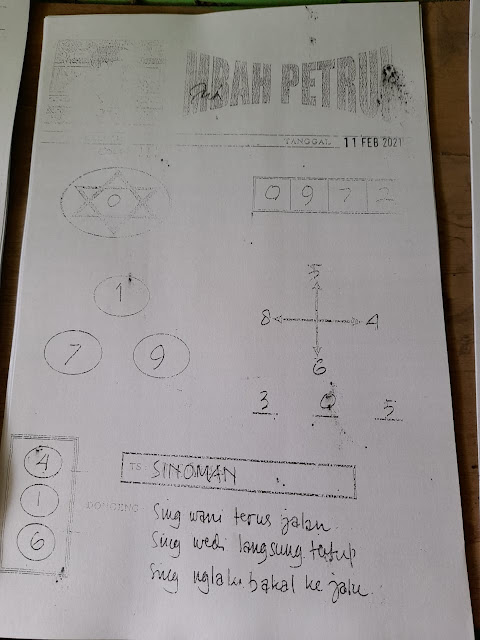 MBAH PETRUK
TANGGAL 11 FEB 2021
0
0 9 7 2
1
7 9
5
8 4
6
3 0 5
4
1
6
TS: SINOMAN
DONGENG: Sing wani terus jalan
Sing wedi langsung tertup
Sing nglaku bakal ke jalu